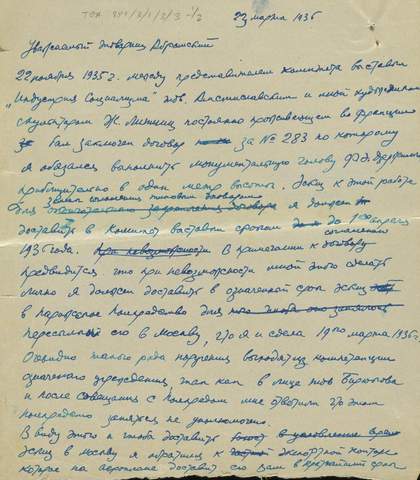 TGA 841/8/1/3/3 1/2
23 марта 1936
Уважаемый товарищ Абрамский
22 ноября 1935 г. между представителем комитета выставки
"Индустрия Социализма" тов. и мной художником
скульптором Ж. Липшиц постоянно проживающем во Франции
был заключен договор за № 283 по которому
я обязался выполнить монументальную голову Ф. Э. Дзержинс
приблизительно в один метр высоты. Эскиз к этой работе
для я должен
доставить в Комитет выставки сроком до 1го апреля
1936 года. При невозможности В примечании к договору
предвидится, что при невозможности мной это сделать
лично я должен доставить в означенной срок эскиз
в парижское Полпредство для
пересылки его в Москву, что я и сделал 19го марта 1936 г.
Очевидно такого рода поручения выходят из компетенции
означенного учреждения, так как в лице тов Бирюкова
и после совещания с Полпредом мне ответили что этим
полпредство заняться не уполномочено.
В виду этого и чтобы доставить
эскиз в Москву я обратился к экспортной конторе
которые на аэроплане доставит его вам в кратчайший срок